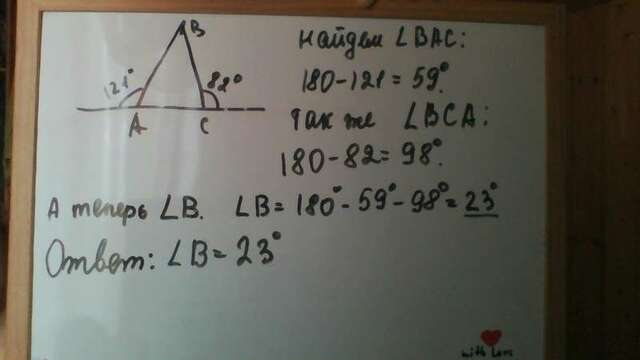 B
121°
82°
A
C
Найдем ∠BAC:
180-121=59°.
Так же ∠BCA:
180-82=98°.
А теперь ∠B. ∠B=180°-59°-98°=23°
Ответ: ∠B=23°
with Love